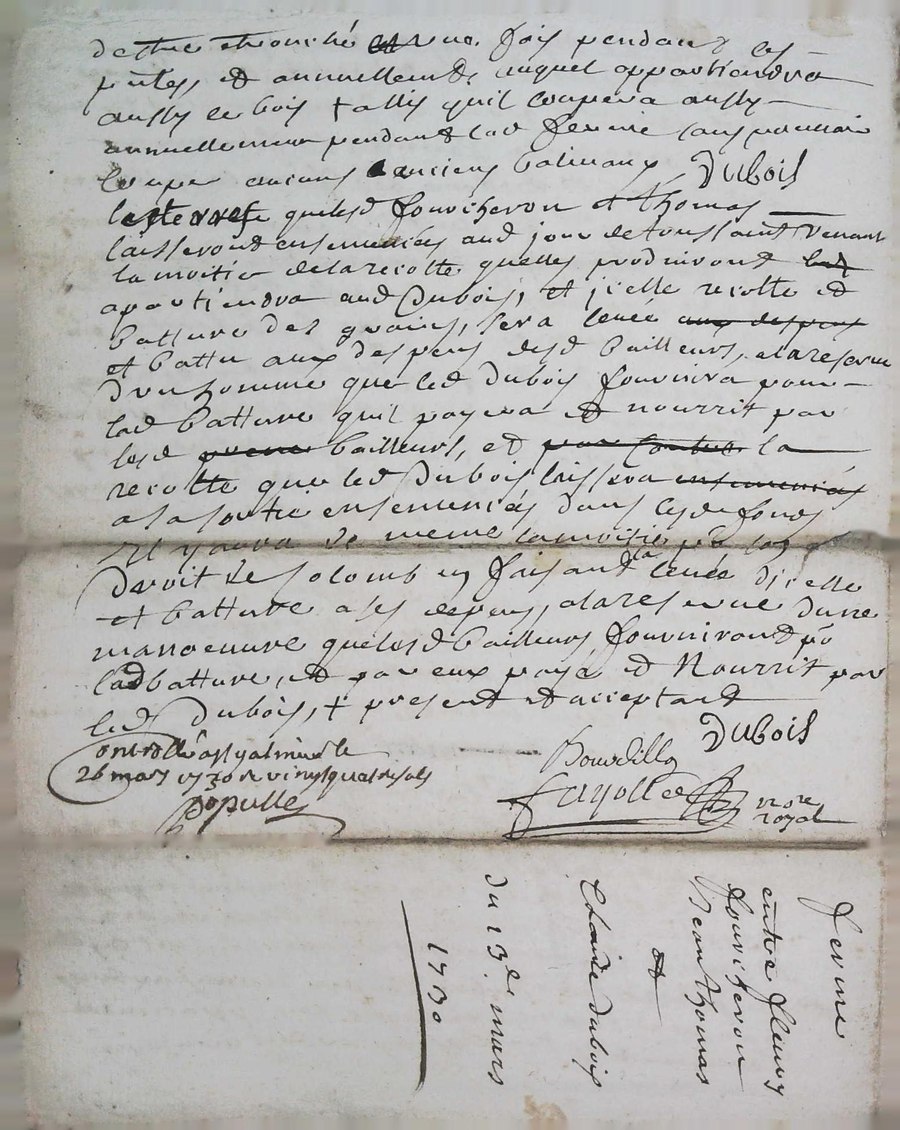 destre etrouché une fois pendant les
prites, et annuellemt, auquel appartiendra
aussy le bois tallis quil coupera aussy
annuellement pendant lad ferme sans pouvoir
couper aucuns anciens balivaux Dubois
les terres que lesd fourcheron et thomas
laisseront ensemencées aud jour de toussaint venant
la moitié de la recolte quelles produiront
apartiendra aud Dubois, et jcelle recolte et
batture des grains, sera levée aux despens
et battu aux despens desd bailleurs, a la reserve
dun homme que led dubois fournira pour
lad batture quil payera et nourrit par
lesd bailleurs, et par contre la
recolte que led Dubois laissera ensemencés
a sa sortie ensemencés dans lesd fonds
Il y aura de meme la moitié
Droit de colomb en faisant la levée dicelle
et batture a ses despens, a la reserve dune
manoeuvre que lesd bailleurs fourniront pr
lad batture, et par eux payé et Nourrit par
led Dubois, + present et acceptant
Dubois
Controllé a st galmier le
26 mars 1730 R vingt quatre sols
Populle
Bourdillon
Fayolle nore
royal
ferme
entre fleury
fourcheron
Jean thomas
et
Claude dubois
du 13e mars
1730